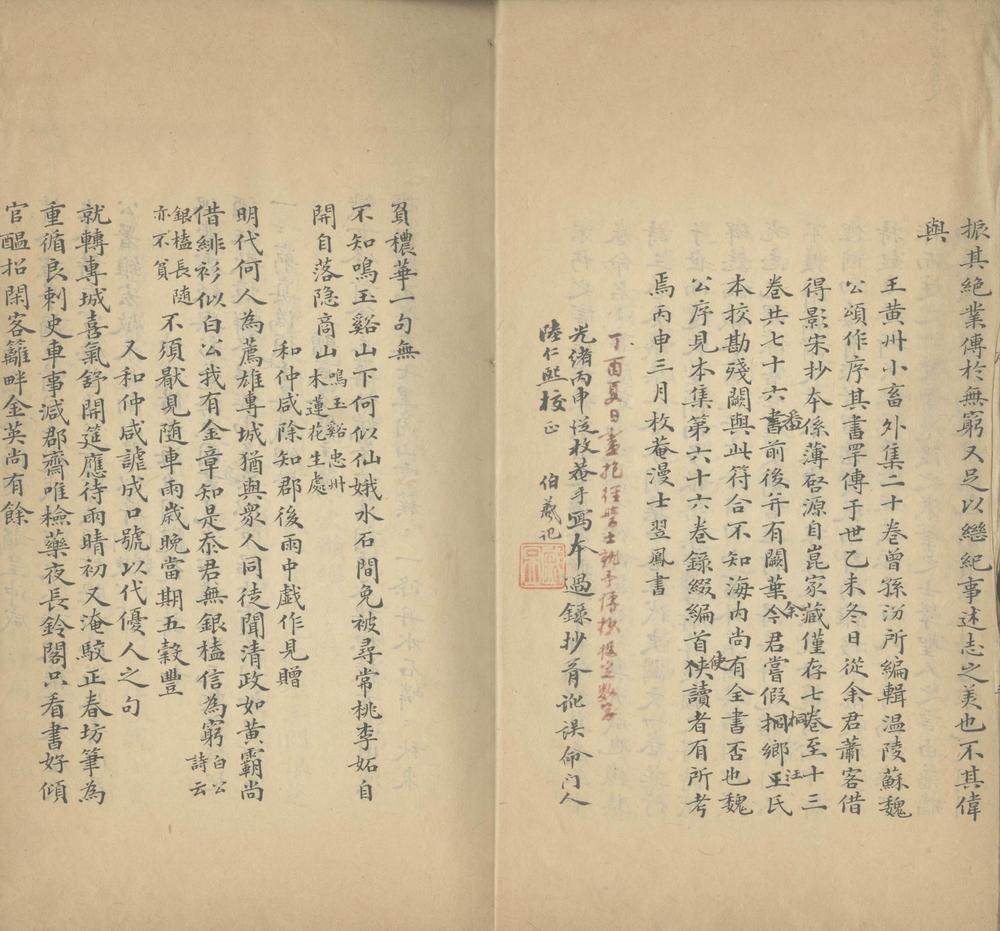 振其絶業傳於無窮又足以繼紀事述志之美也不其偉
與
王黄州小畜外集二十卷曾孫汾所編輯温陵蘇魏
公頌作序其書罕傳于世乙未冬日從余君蕭客借
得影宋抄本係薄啓源自崑家藏僅存七卷至十三
卷共七十六番前後并有闕葉余君嘗假桐鄉汪氏
本校勘殘闕與此符合不知海内尚有全書否也魏
公序見本集第六十六卷錄綴編首使讀者有所考
焉丙申三月枚菴漫士翌鳳書
丁酉夏日盡抱經學士就予傳抄投定數字
光緒丙申從枚菴手寫本過錄抄胥訛誤命门人
陸仁熙校正 伯羲記
負穠華一句無
不知鳴玉谿山下何似仙娥水石間免被尋常桃李妬自
開自落隐商山 鳴玉谿忠州
木蓮花生處
和仲咸除知郡後雨中戲作見贈
明代何人為薦雄專城猶與衆人同徒聞清政如黄霸尚
借緋衫似白公我有金章知是忝君無銀榼信為窮 白公
詩云
銀榼長随
亦不貧 不須猒見随車雨歳晚當期五穀豐
又和仲咸謔成口號以代優人之句
就轉專城喜氣舒開筵應待雨晴初又淹駿正春坊筆為
重循良刺史車事減郡齋唯檢藥夜長鈴閣只看書好傾
官醖招閑客籬畔金英尚有餘